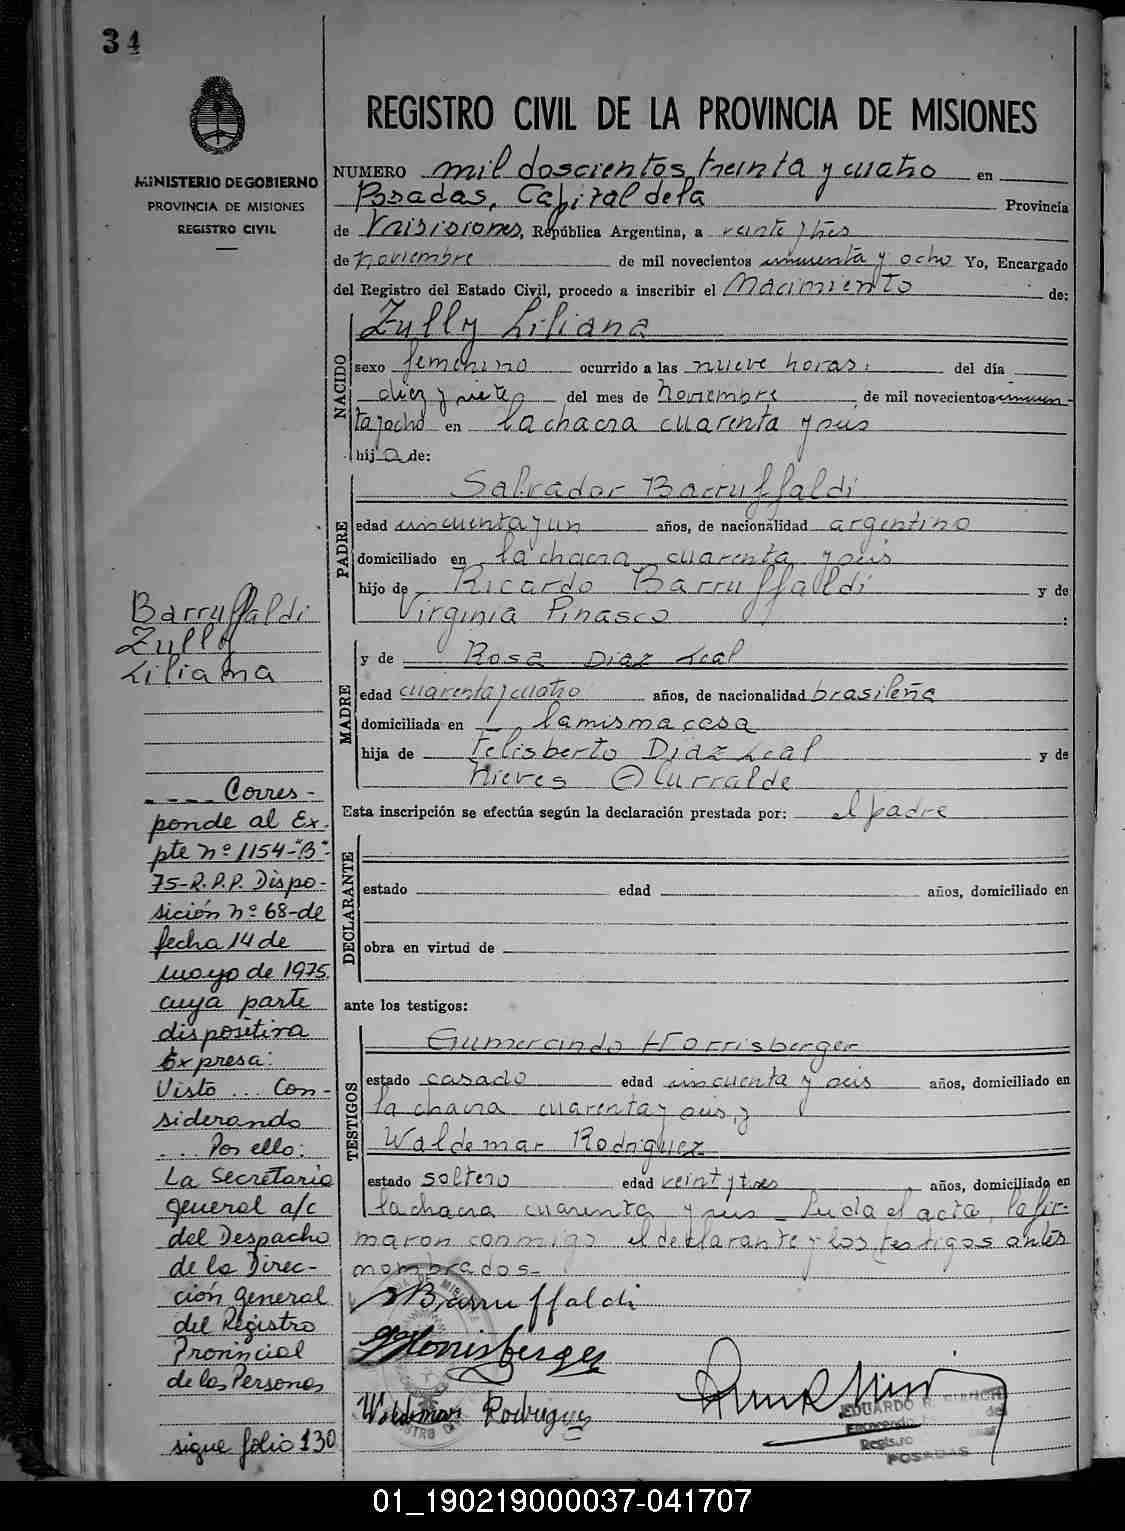 34
MINISTERIO DE GOBIERNO
PROVINCIA DE MISIONES
REGISTRO CIVIL
REGISTRO CIVIL DE LA PROVINCIA DE MISIONES
NUMERO mil doscientos treinta y cuatro en
Posadas, Capital de la Provincia
de Misiones, República Argentina, a veinte y tres
de noviembre de mil novecientos cincuenta y ocho Yo, Encargado
del Registro del Estado Civil, procedo a inscribir el Nacimiento de:
NACIDO
Zully Liliana
sexo femenino ocurrido a las nueve horas. del día
diez y siete del mes de Noviembre de mil novecientos cincuen-
ta y ocho en la chacra cuarenta y seis
hija de:
PADRE
Salvador Barruffaldi
edad cincuenta y un años, de nacionalidad argentino
domiciliado en la chacra cuarenta y seis
hijo de Ricardo Barruffaldi y de
Virginia Pinasco :
MADRE
y de Rosa Diaz Leal
edad cuarenta y cuatro años, de nacionalidad brasileña
domiciliada en la misma casa
hija de Felisberto Diaz Leal y de
Nieves Olurralde
Esta inscripción se efectúa según la declaración prestada por: el padre
DECLARANTE
estado edad años, domiciliado en
obra en virtud de
ante los testigos:
TESTIGOS
Gumercindo Horrisberger
estado casado edad cincuenta y seis años, domiciliado en
la chacra cuarenta y seis, y
Waldemar Rodriguez
estado soltero edad veinte y tres años, domiciliado en
la chacra cuarenta y seis - Leida el acta, la fir-
maron conmigo el declarante y los testigos antes
nombrados-
SBarruffaldi
GHorrisberger
Waldemar Rodriguez
EDUARDO R.
Encargado del
Registro
POSADAS
Barruffaldi
Zully
Liliana
---- Corres-
ponde al Ex-
pte nº 1154-"B"-
75-R.P.P. Dispo-
sición nº 68-de
fecha 14 de
mayo de 1975.
cuya parte
dispositiva
Expresa:
Visto ... Con-
siderando
... Por ello:
La Secretaria
general a/c
del Despacho
de la Direc-
ción general
del Registro
Provincial
de las Personas
sigue folio 130
01_190219000037-041707